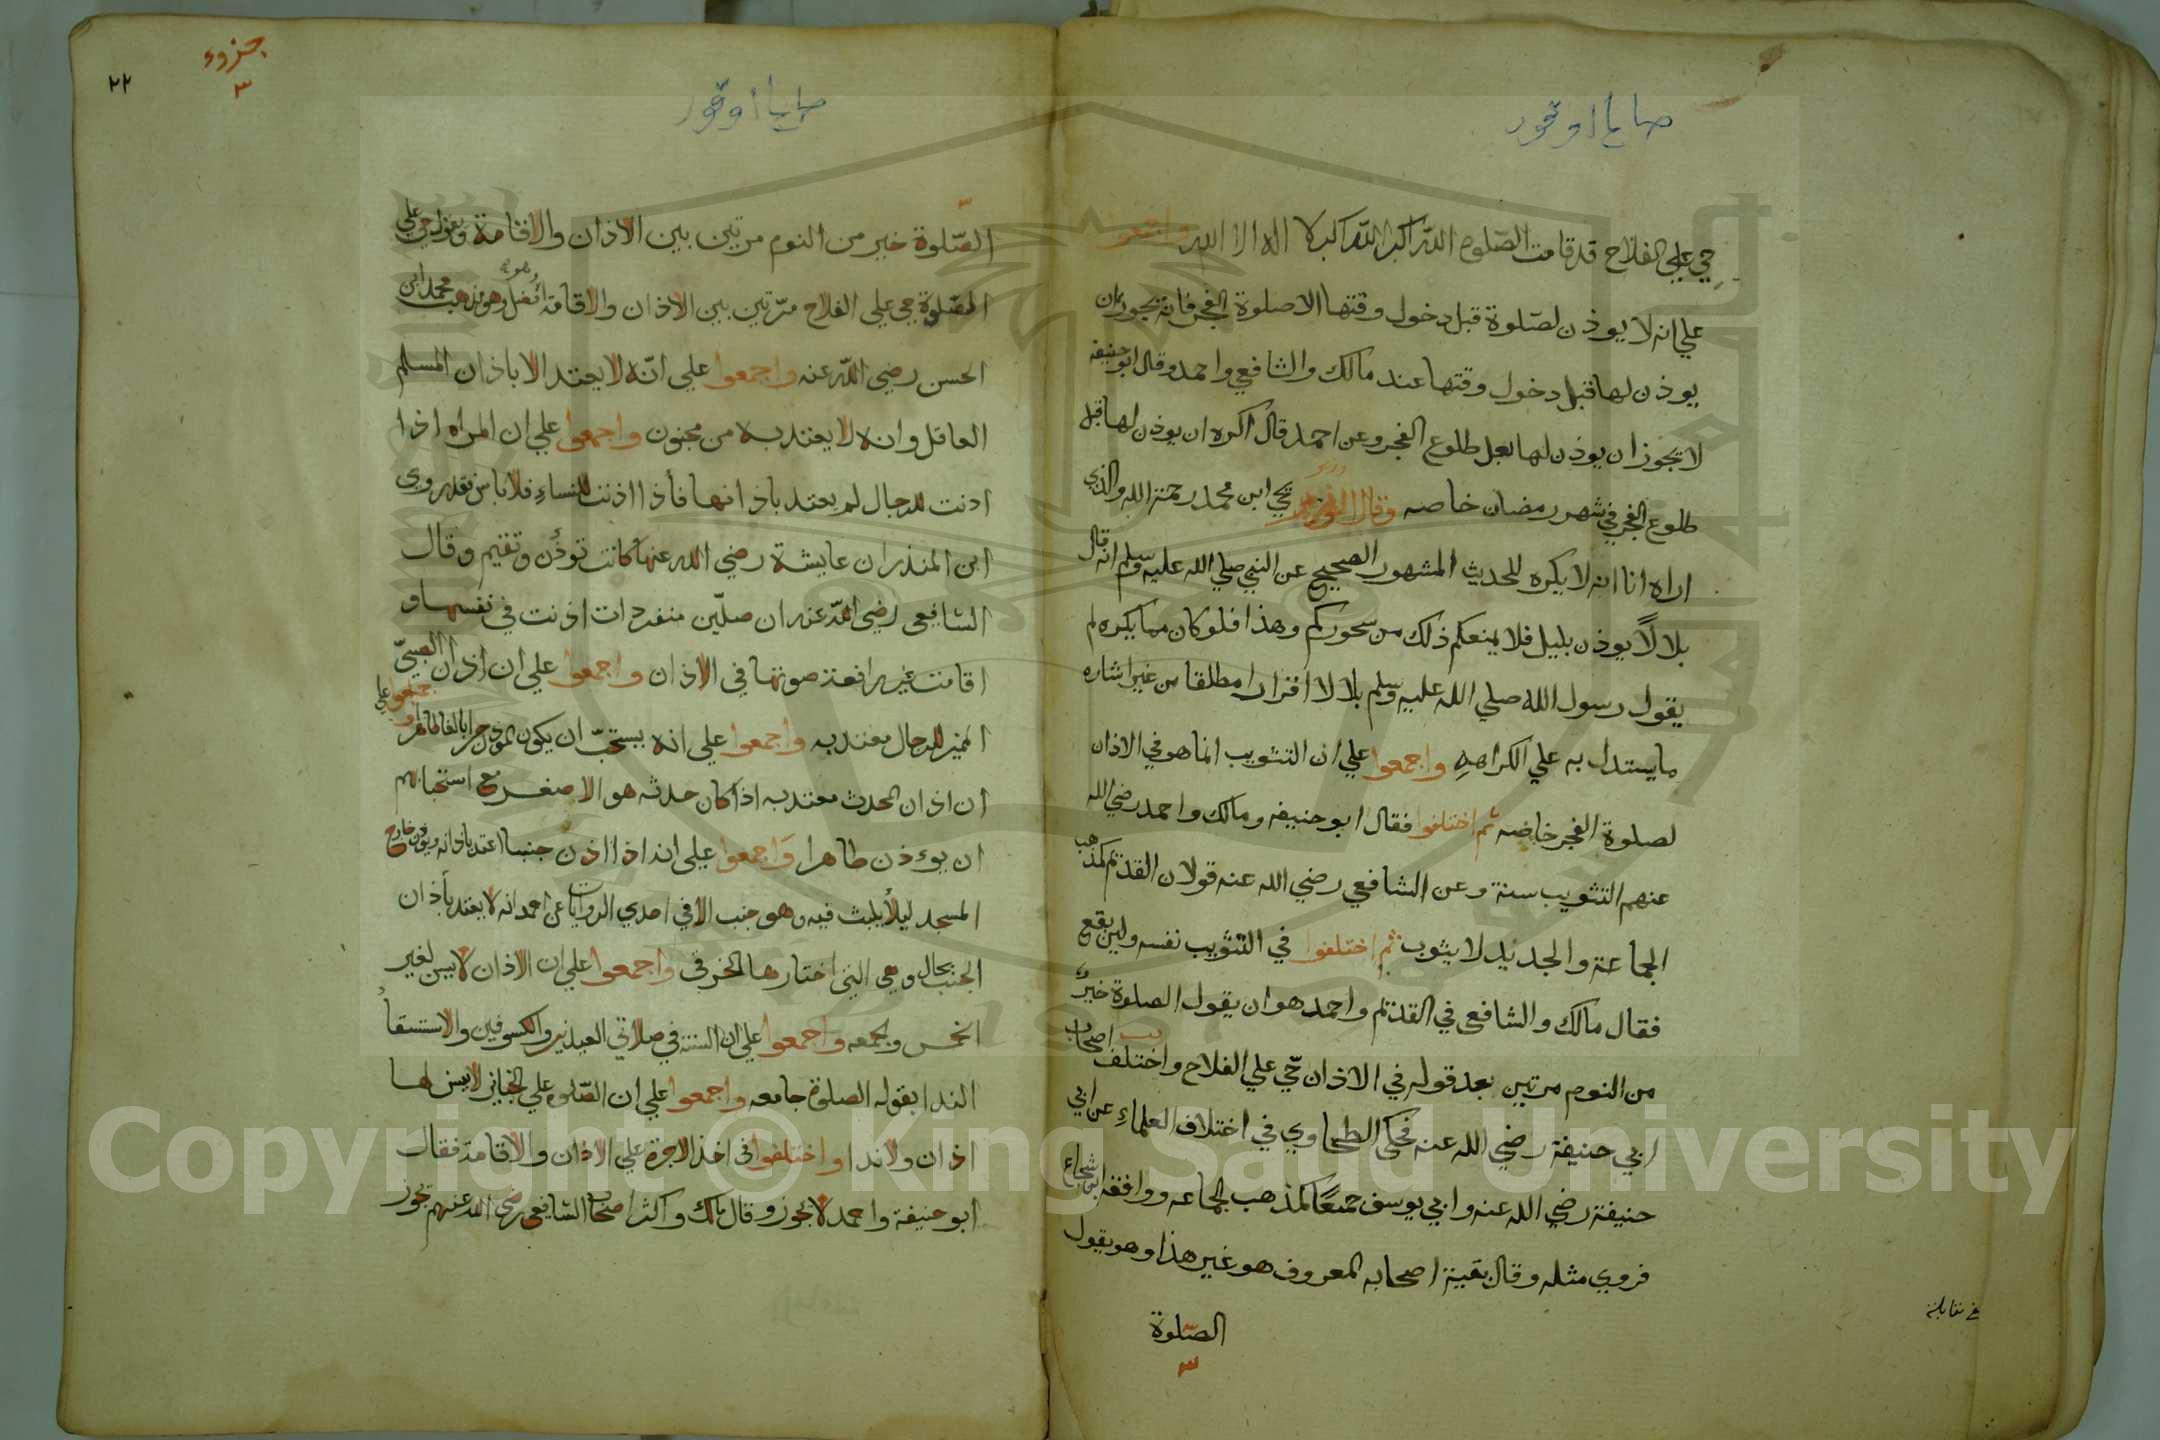 حي علي الفلاح قد قامت الصّلوه اللّه اكبر اللّه اكبر لا اله الا اللّه واجمعوا
علي انه لا يوذن لصّلوة قبل دخول وقتها الا صلوة الفجر فانه يجوز ان
يوذن لها قبل دخول وقتها عند مالك والشافعي واحمد وقال ابو حنيفه
لا يجوز ان يوذن لها بعد طلوع الفجر وعن احمد قال اكره ان يوذن لها قبل
طلوع الفجر في شهر رمضان خاصه وقال الوزير يحي ابن محمد رحمة الله والذي
اراه انا انه لا يكره للحديث المشهور الصحيح عن النبي صلي الله عليه وسلم انه قال
بلالاً يوذن بليل فلا يمنعكم ذلك من سحوركم وهذا فلو كان مما يكره لم
يقول رسول الله صلي الله عليه وسلم بلالا اقرارا مطلقا من غير اشاره
ما يستدل به علي الكراهه واجمعوا علي ان التثويب انما هو في الاذان
لصلوة الفجر خاصه ثم اختلفوا فقال ابو حنيفه ومالك واحمد رضي الله
عنهم التثويب سنة وعن الشافعي رضي الله عنه قولان القديم كمذهب
الجماعة والجديد لا يثوب ثم اختلفوا في التثويب نفسه واين يقع
فقال مالك والشافعي في القديم واحمد هو ان يقول الصلوة خيرٌ
من النوم مرتين بعد قوله في الاذان حّي علي الفلاح واختلف اصحاب
ابي حنيفة رضي الله عنه فحكي الطحاوي في اختلاف العلماءِ عن ابي
حنيفة رضي الله عنه وابي يوسف جميعًا كمذهب الجماعه ووافقه ابن شجاع
فروي مثله وقال بقية اصحابه المعروف هو غير هذا وهو يقول
الصّلوة
٣
في مقابلة
جزوء
٣
٢٢
الصّلوة خير من النوم مرتين بين الاذان والاقامة ويقول حي علي
الصّلوة حي علي الفلاح مرّتين بين الاذان والاقامة افضل وهو مذهب محمد ابن
الحسن رضي اللّه عنه واجمعوا علي انّه لا يعتد الا باذان المسلم
العاقل وانه لا يعتد به من مجنون واجمعوا علي ان المراه اذا
اذنت للرجال لم يعتد باذانها فأذا اذنت للنساءِ فلا باس فقد روي
ابن المنذر ان عايشة رضي الله عنها كانت توذن وتقيم وقال
الشافعي رضي اللّه عنه ان صلّين منفردات اذنت في نفسها و
اقامت غير رافعة صوتها في الاذان واجمعوا علي ان اذان الصبيّ
المميز للرجال معتد به واجمعوا علي انه يستحبّ ان يكون الموذن حرا بالغا طاهرا واجمعوا علي
ان اذان المحدث معتد به اذا كان حدثه هو الاصغر مع استحبابهم
ان يوءذن طاهرا وَاجمعوا علي انه اذا اذن جنبا اعتد باذانه ويوذن خارج
المسجد ليلاً يلبث فيه وهو جنب الا في احدي الروايات عن احمد انه لا يعتد بأذان
الجنب بحال وهي التي اختارها الخرقي واجمعوا علي ان الاذان لا يسن لغير
الخمس والجمعه واجمعوا علي ان السنة في صلاتي العيدين والكسوفين والاستسقاء
الندا بقوله الصلوة جامعه واجمعوا علي ان الصّلوه علي الجنايز لا يسن لها
اذان ولا ندا واختلفوا في اخذ الاجرة علي الاذان والاقامة فقال
ابو حنيفة واحمد لا يجوز وقال مالك واكثر اصحاب الشافعي رضي اللّه عنهم يجوز
Copyright © King Saud University